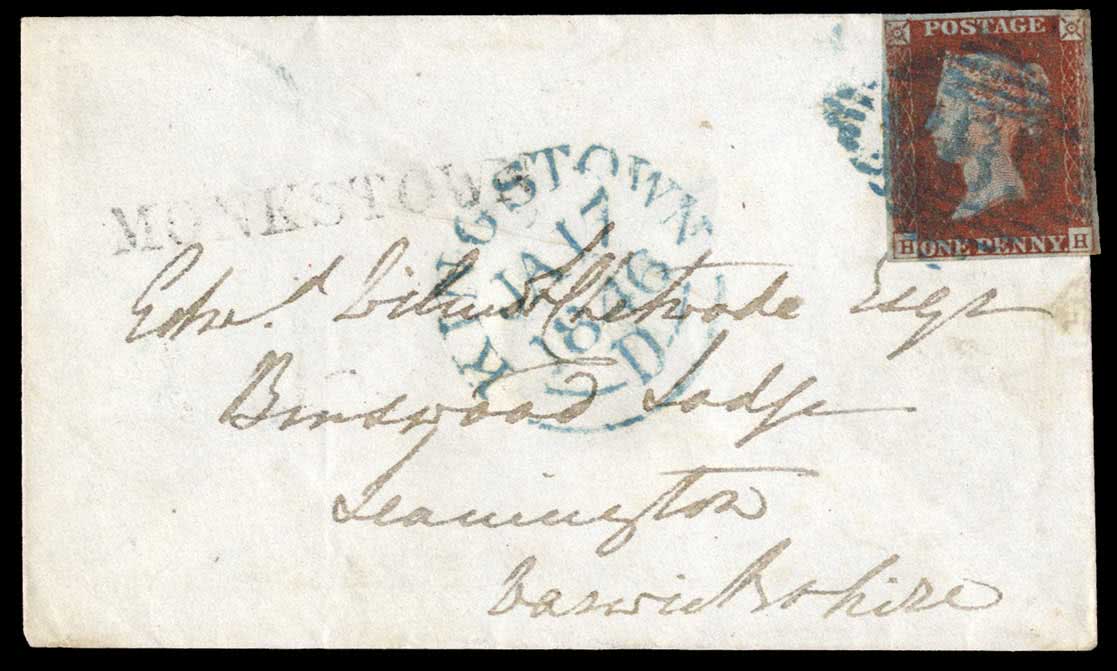 POSTAGE
H ONE PENNY H
MONKSTOWN
KINGSTOWN
JA 17
1846
D
Edwd. Chetwode Esqr
Binswood Lodge
Leamington
Warwickshire